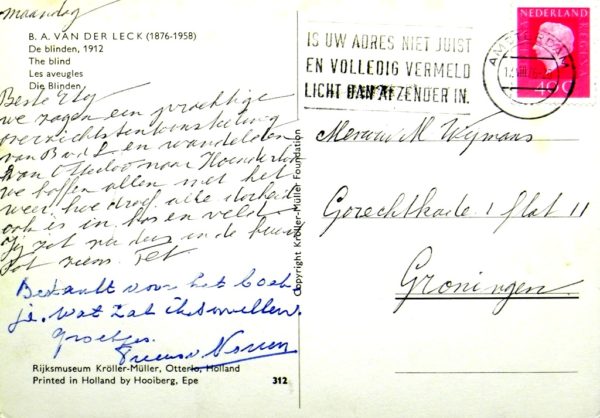 maandag
B. A. VAN DER LECK (1876-1958)
De blinden, 1912
The blind
Les aveugles
Die Blinden
Beste
we zagen een prachtige
overzichtstentoonstelling
van B v d L en wandelden
van Otterloo naar Hoenderloo
we boffen allen met het
weer, hoe droef alle
ook is in bos en veld
Jij zat nu
Tot ziens. Tet
Bedankt voor het boek
je. Wat zal ik smullen.
Groetjes.
Rijksmuseum Kröller-Müller, Otterlo, Holland
Printed in Holland by Hooiberg, Epe
312
Copyright Kröller-Müller Foundation
IS UW ADRES NIET JUIST
EN VOLLEDIG VERMELD
LICHT DAN AFZENDER IN.
AMSTERDAM
NEDERLAND
40 C
Mevrouw M Wymans
Gorechtkade 1 flat 11
Groningen